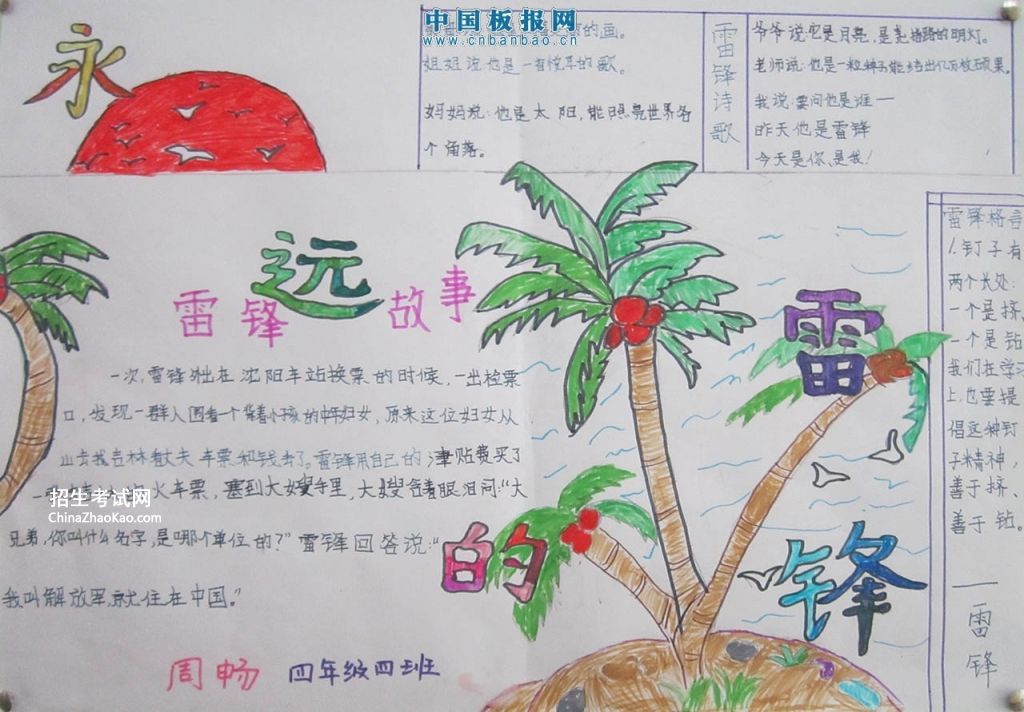 永
远
的
雷
锋
中国板报网
www.cnbanbao.cn
的画。
姐姐说他是一首悦耳的歌。
妈妈说:他是太阳,能照亮世界各
个角落。
雷锋诗歌
爷爷说它是月亮,是亮指路的明灯。
老师说:他是一粒种子能结出亿万枚硕果。
我说:要问他是谁一
昨天他是雷锋
今天是你,是我!
雷锋故事
一次,雷锋外出在沈阳车站换票的时候,一出检票
口,发现一群人围着一个背着小孩的中年妇女,原来这位妇女从
山去找吉林看丈夫车票和钱丢了。雷锋用自己的津贴费买了
火车票,塞到大嫂手里,大嫂含着眼泪问:“大
兄弟,你叫什么名字,是哪个单位的?”雷锋回答说:“
我叫解放军,就住在中国。”
招生考试网
ChinaZhaoKao.com
周畅 四年级四班
雷锋格言
1.钉子有
两个长处:
一个是挤,
一个是钻
我们在学习
上,也要提
倡这种钉
子精神,
善于挤、
善于钻。
—雷锋